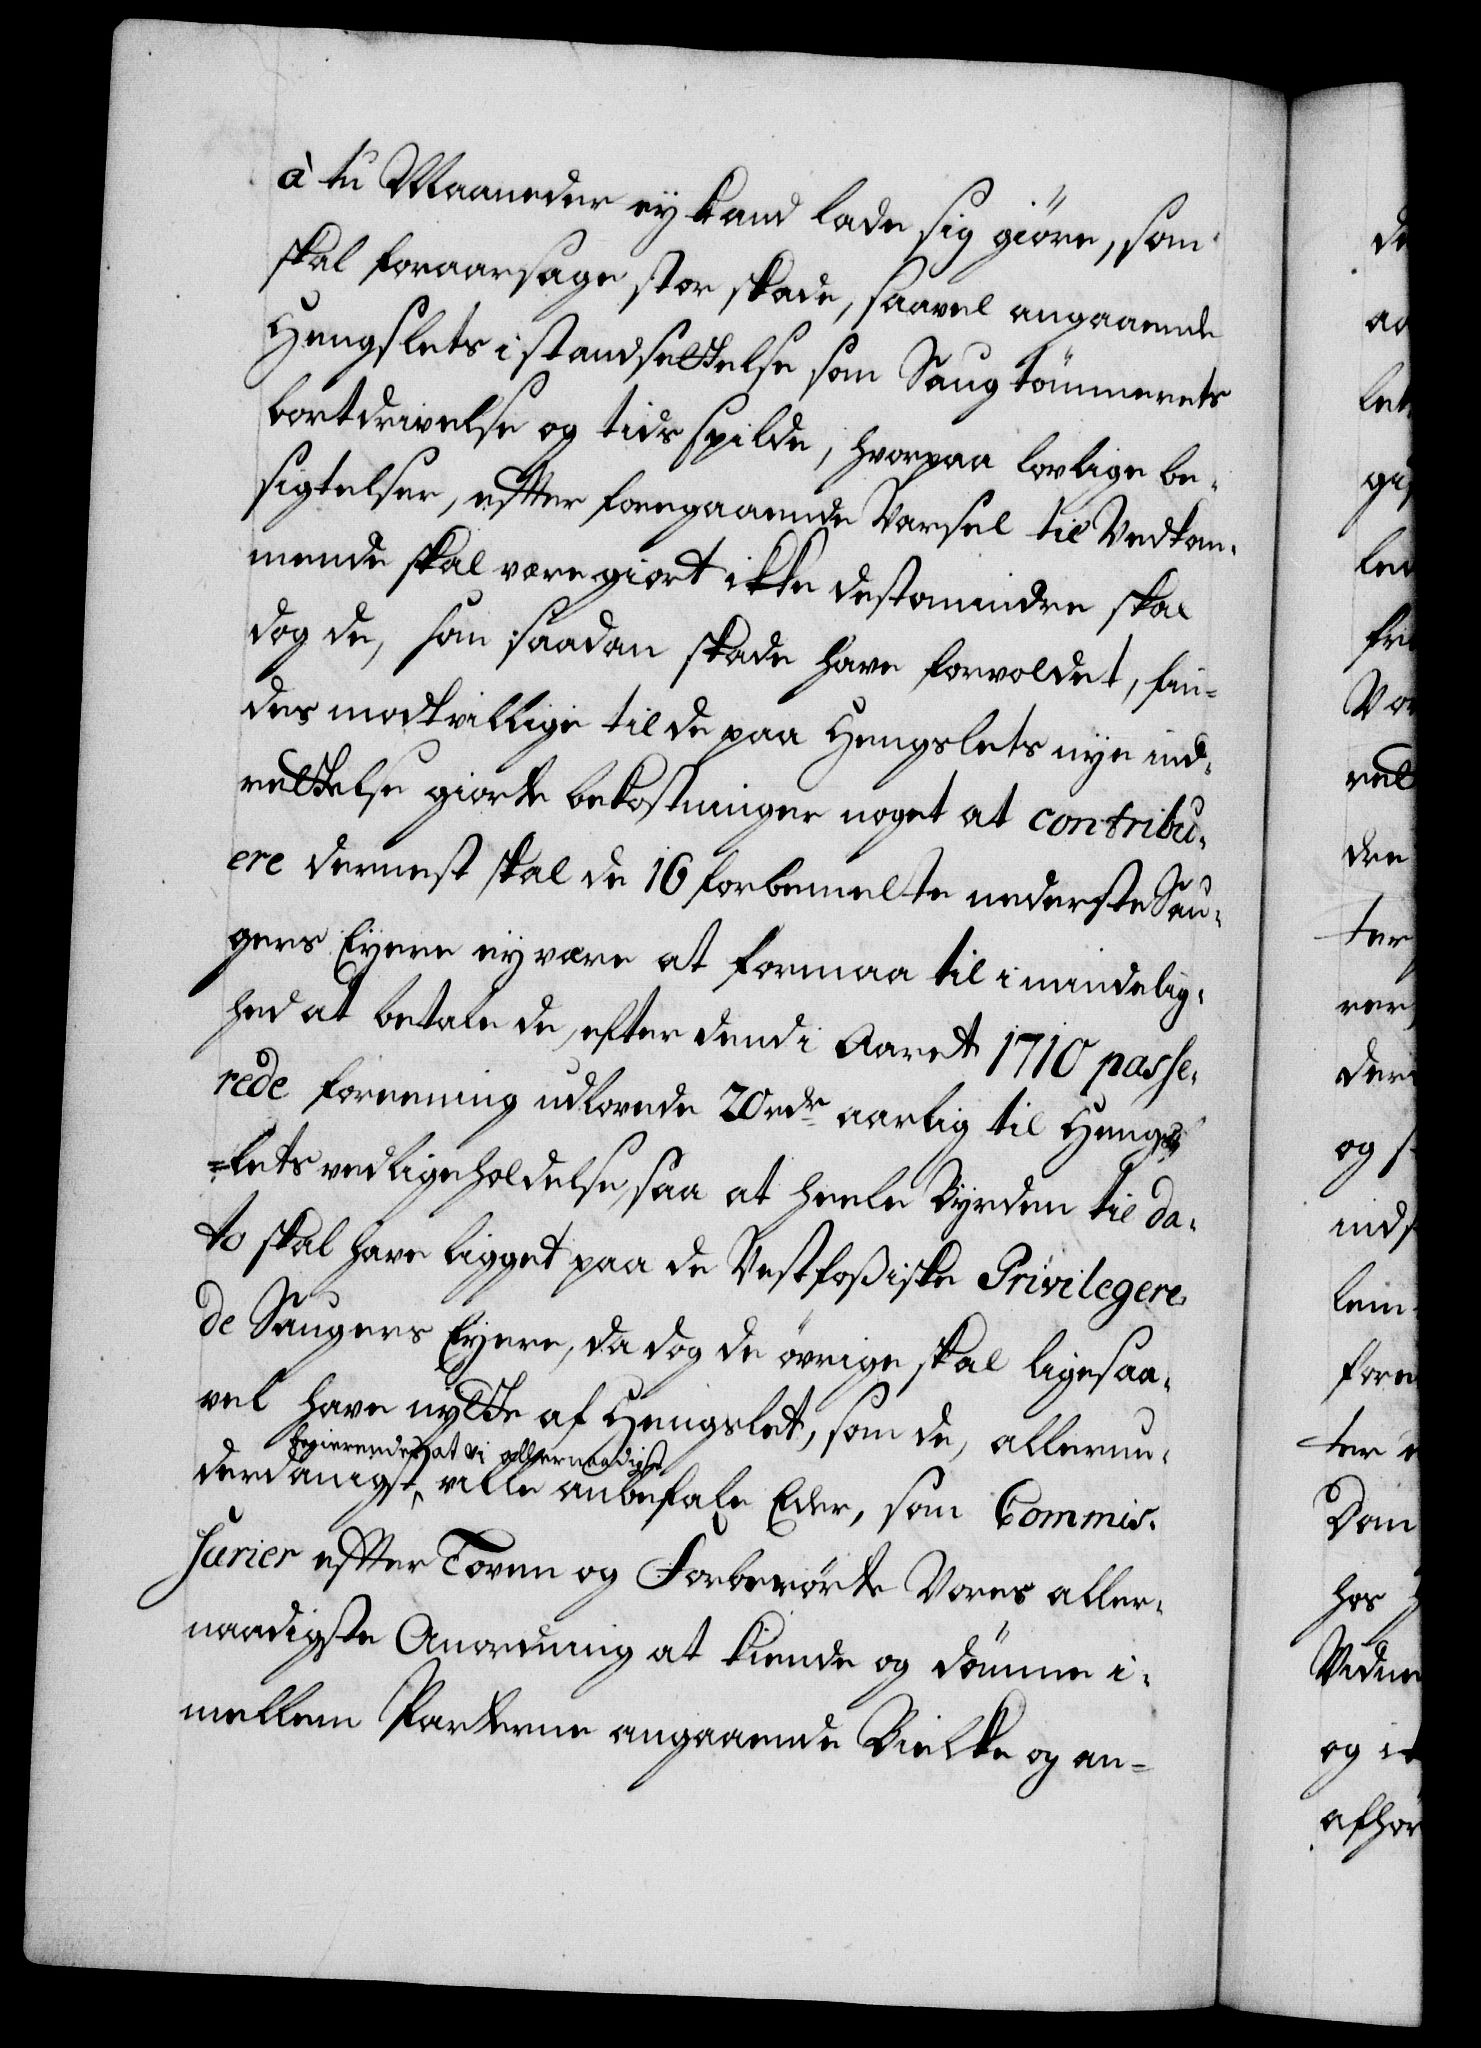 à tu Maaneder ey kand lade sig giöre, som
skal foraarsage stor skade, saavel angaaende
Hengslets istandsettelse som Saugtömmerets
bortdrivelse og tids spilde, hvorpaa lovlige be-
sigtelser, effter foregaaende Varsel til Vedkom-
mende skal være giort ikke destomindre skal
dog de, som saadan skade have forvoldet, fin-
des modtvillige til de paa Hengslets nye ind-
rettelse giorte bekostninger noget at contribu-
ere dernest skal de 16 forbemelte nederste Sau-
gers Eyere ey være at formaa til i mindelig-
hed at betale de, efter dend i Aaret 1710 passe-
rede foreening udlovede 20 rdr aarlig til Hengs
=lets vedligeholdelse, saa at heele Byrden til da-
to skal have ligget paa de Vestfoßiske Privilegere-
de Saugers Eyere, da dog de övrige skal ligesaa-
vel have nytte af Hengslet, som de, allerun-
begierende, at vi allernaadigst
derdanigst ville anbefale Eder, som Commis-
sarier effter Loven og Forberörte Vores aller-
naadigste Anordning at kiende og dömme i-
mellem Parterne angaaende Bielke og an=